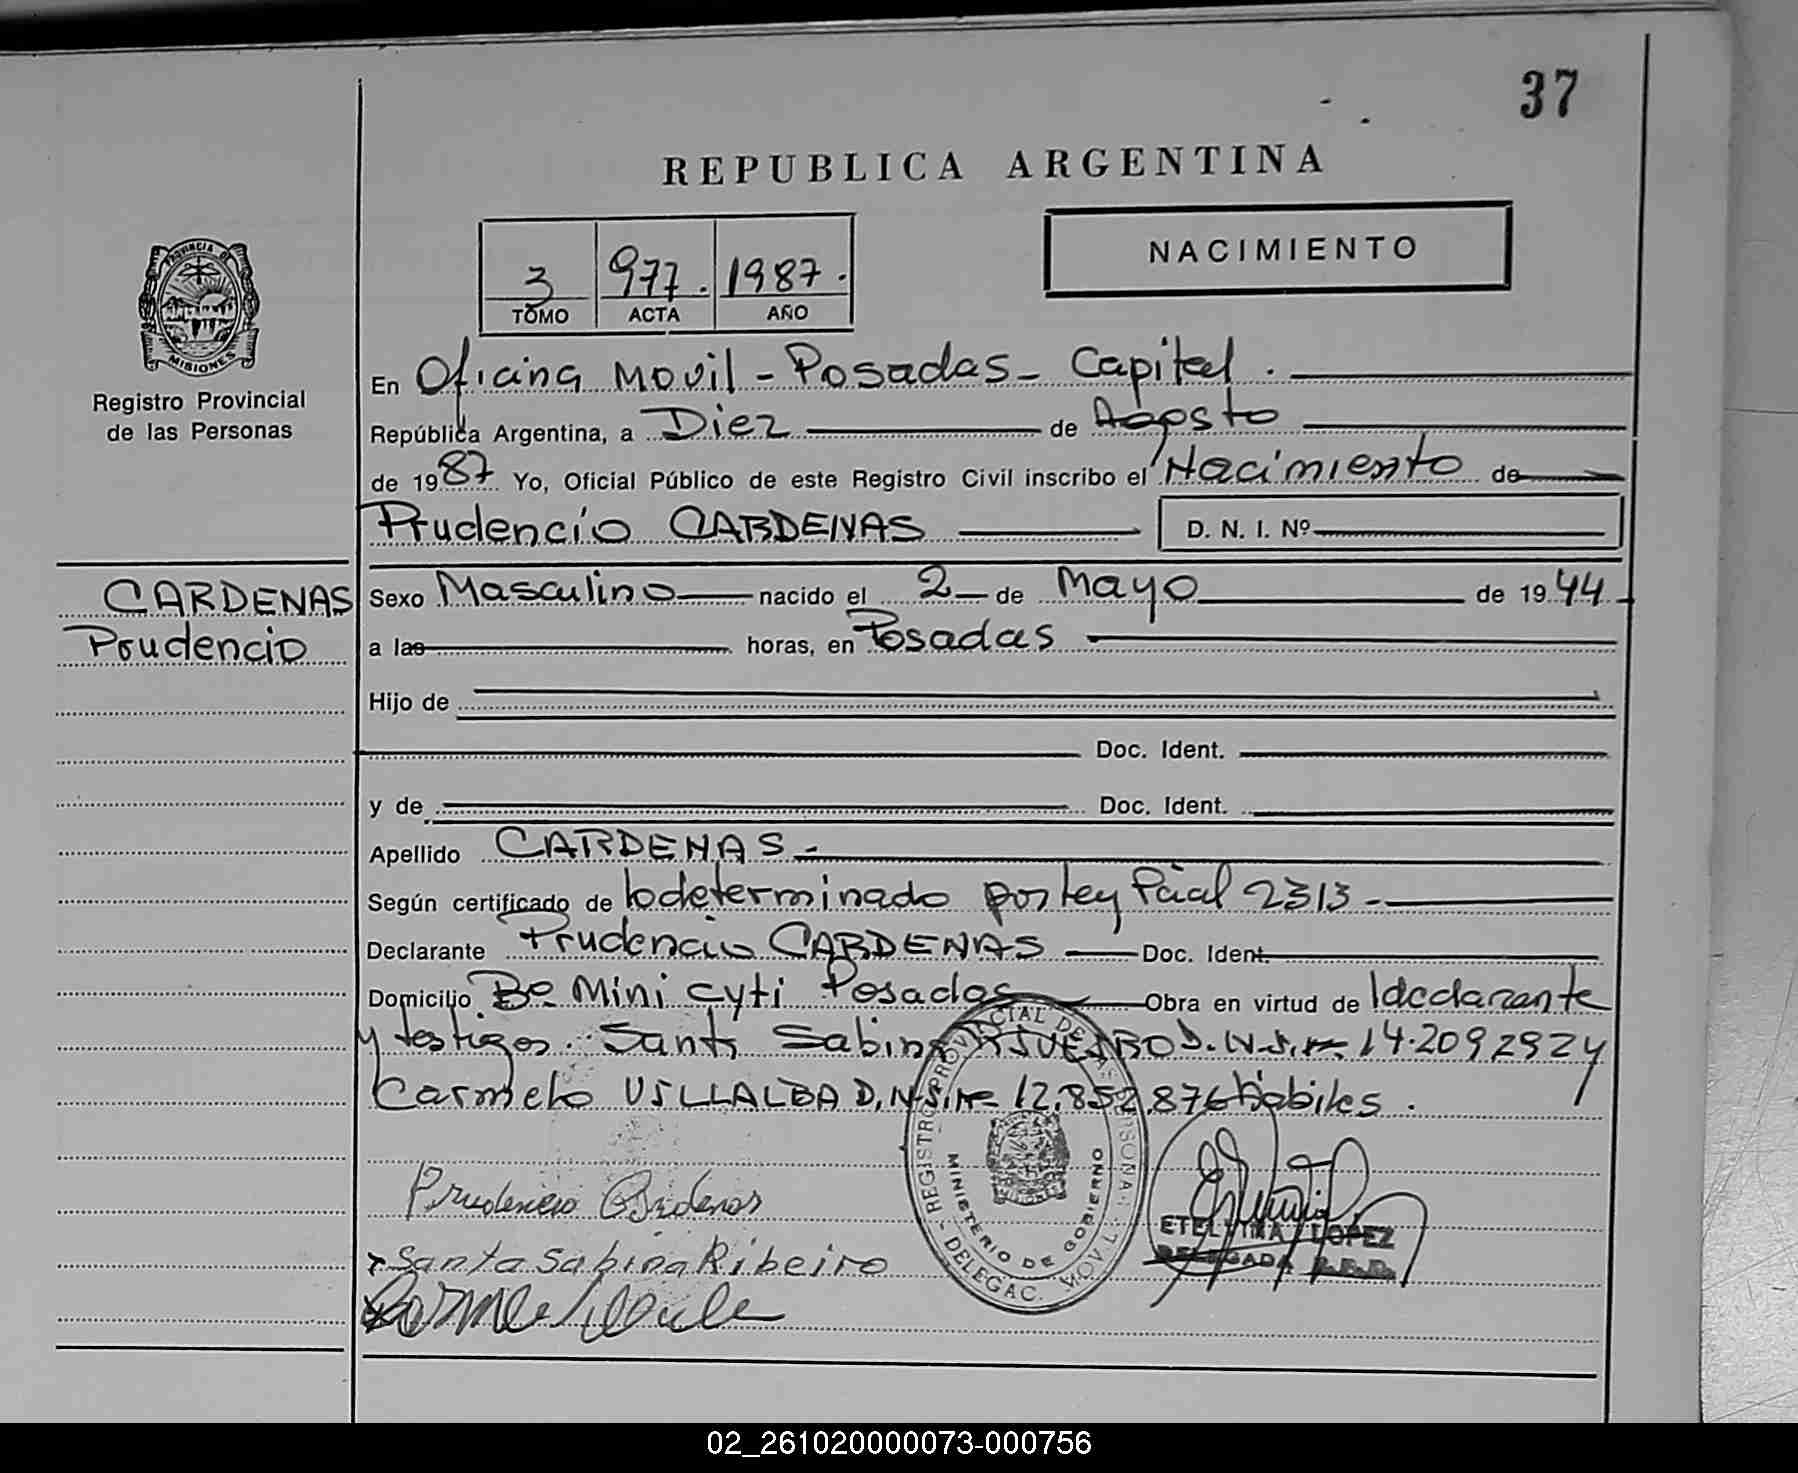 37
REPUBLICA ARGENTINA
3 977. 1987.
TOMO ACTA AÑO
NACIMIENTO
PROVINCIA DE
MISIONES
Registro Provincial
de las Personas
En Oficina Movil - Posadas - Capital.
República Argentina, a Diez de Agosto
de 1987 Yo, Oficial Público de este Registro Civil inscribo el Nacimiento de
Prudencio CARDENAS D. N. I. Nº
CARDENAS
Prudencio
Sexo Masculino nacido el 2 de Mayo de 1944
a las horas, en Posadas
Hijo de
Doc. Ident.
y de Doc. Ident.
Apellido CARDENAS -
Según certificado de lo determinado por Ley Pcial 2313 -
Declarante Prudencio CARDENAS Doc. Ident.
Domicilio Bo Mini cyti Posadas Obra en virtud de ldeclarante
y testigos. Santa Sabina D.N.I. Nº 14.209292 y
Carmelo VILLALBA D.N.I. Nº 12.852.876 hábiles.
Prudencio Cardenas
Santa Sabina Ribeiro
REGISTRO PROVINCIAL DE LAS PERSONAS - DELEGAC. MOVIL -
MINISTERIO DE GOBIERNO
ETELVINA LOPEZ
DELEGADA R.P.P.
02_261020000073-000756